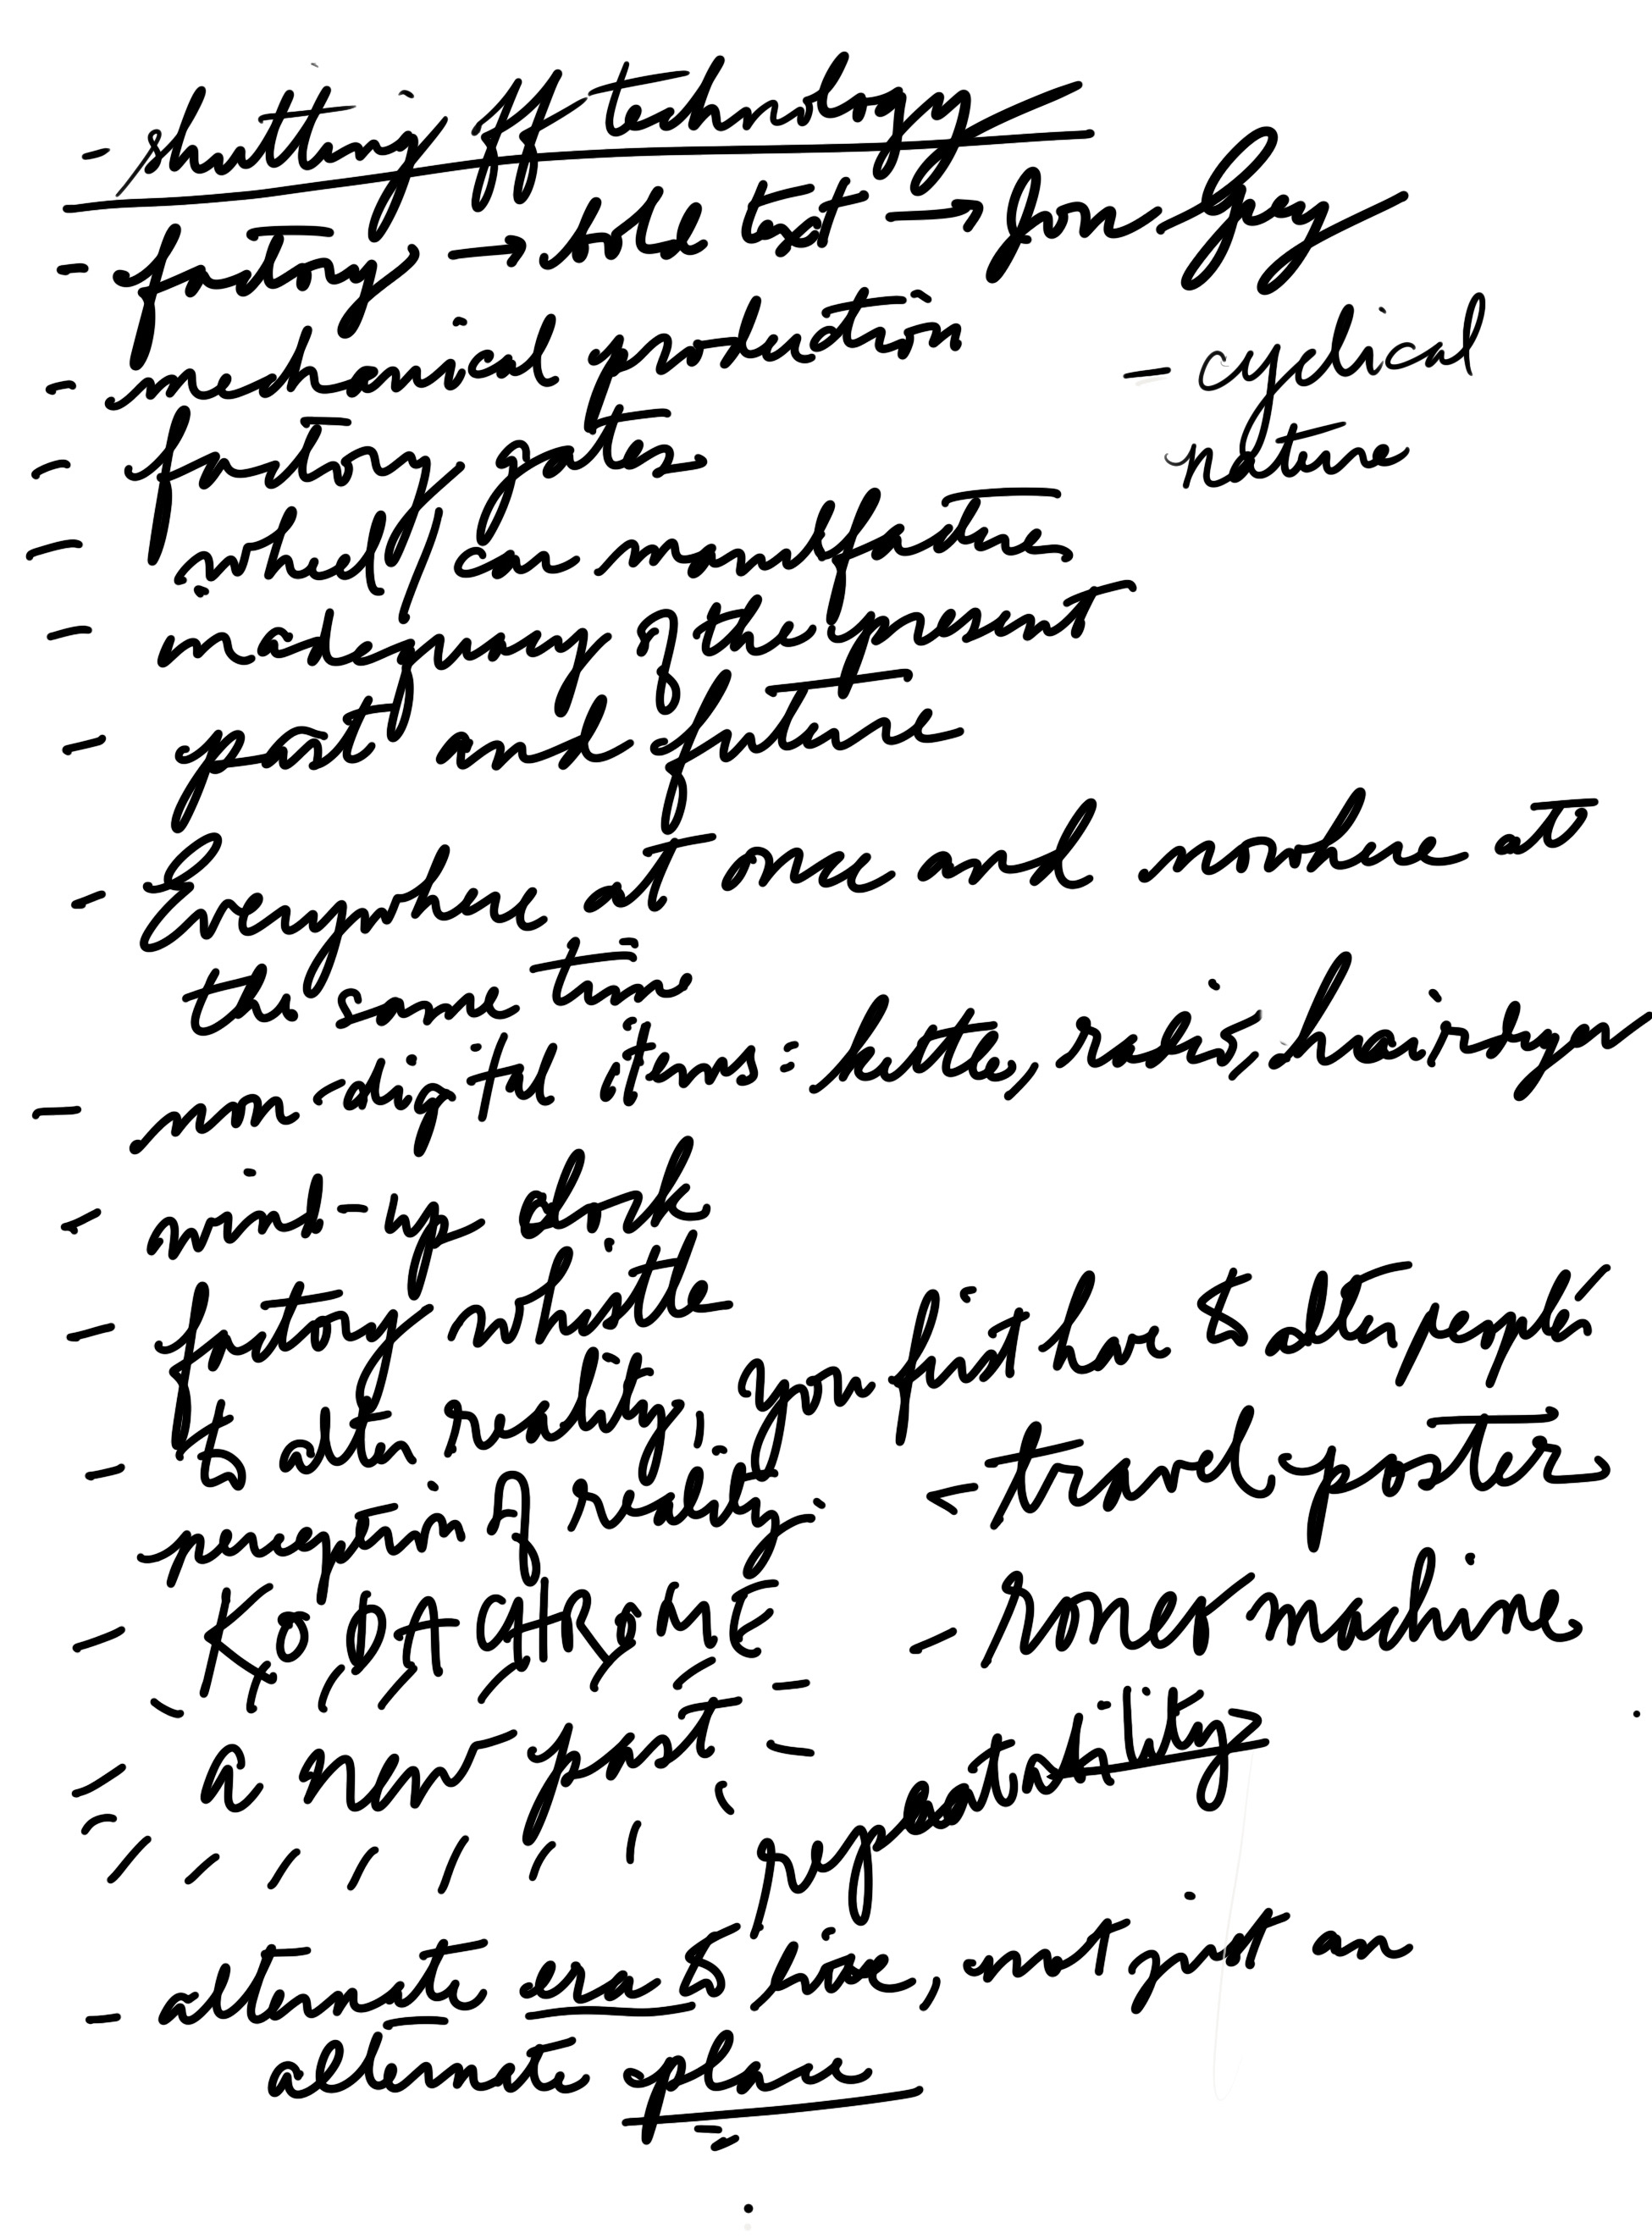 - shutting off technology
- factory → bold text → foreign
- mechanical production
- cyclical
nature
- factory gates
- wheel/car manufacture
- inadequacy of the present
- past and future
- Everywhere at once and nowhere at
the same time
- non-digital items: kettle, radio, hairdryer
- wind-up clock
- factory whistle
- to alter reality, you first have to alter people's
perception of reality.
- travel poster
- KODACHROME
- xerox machine
- a new past -
repeatability
- alternate era to live, not just an
alternate place